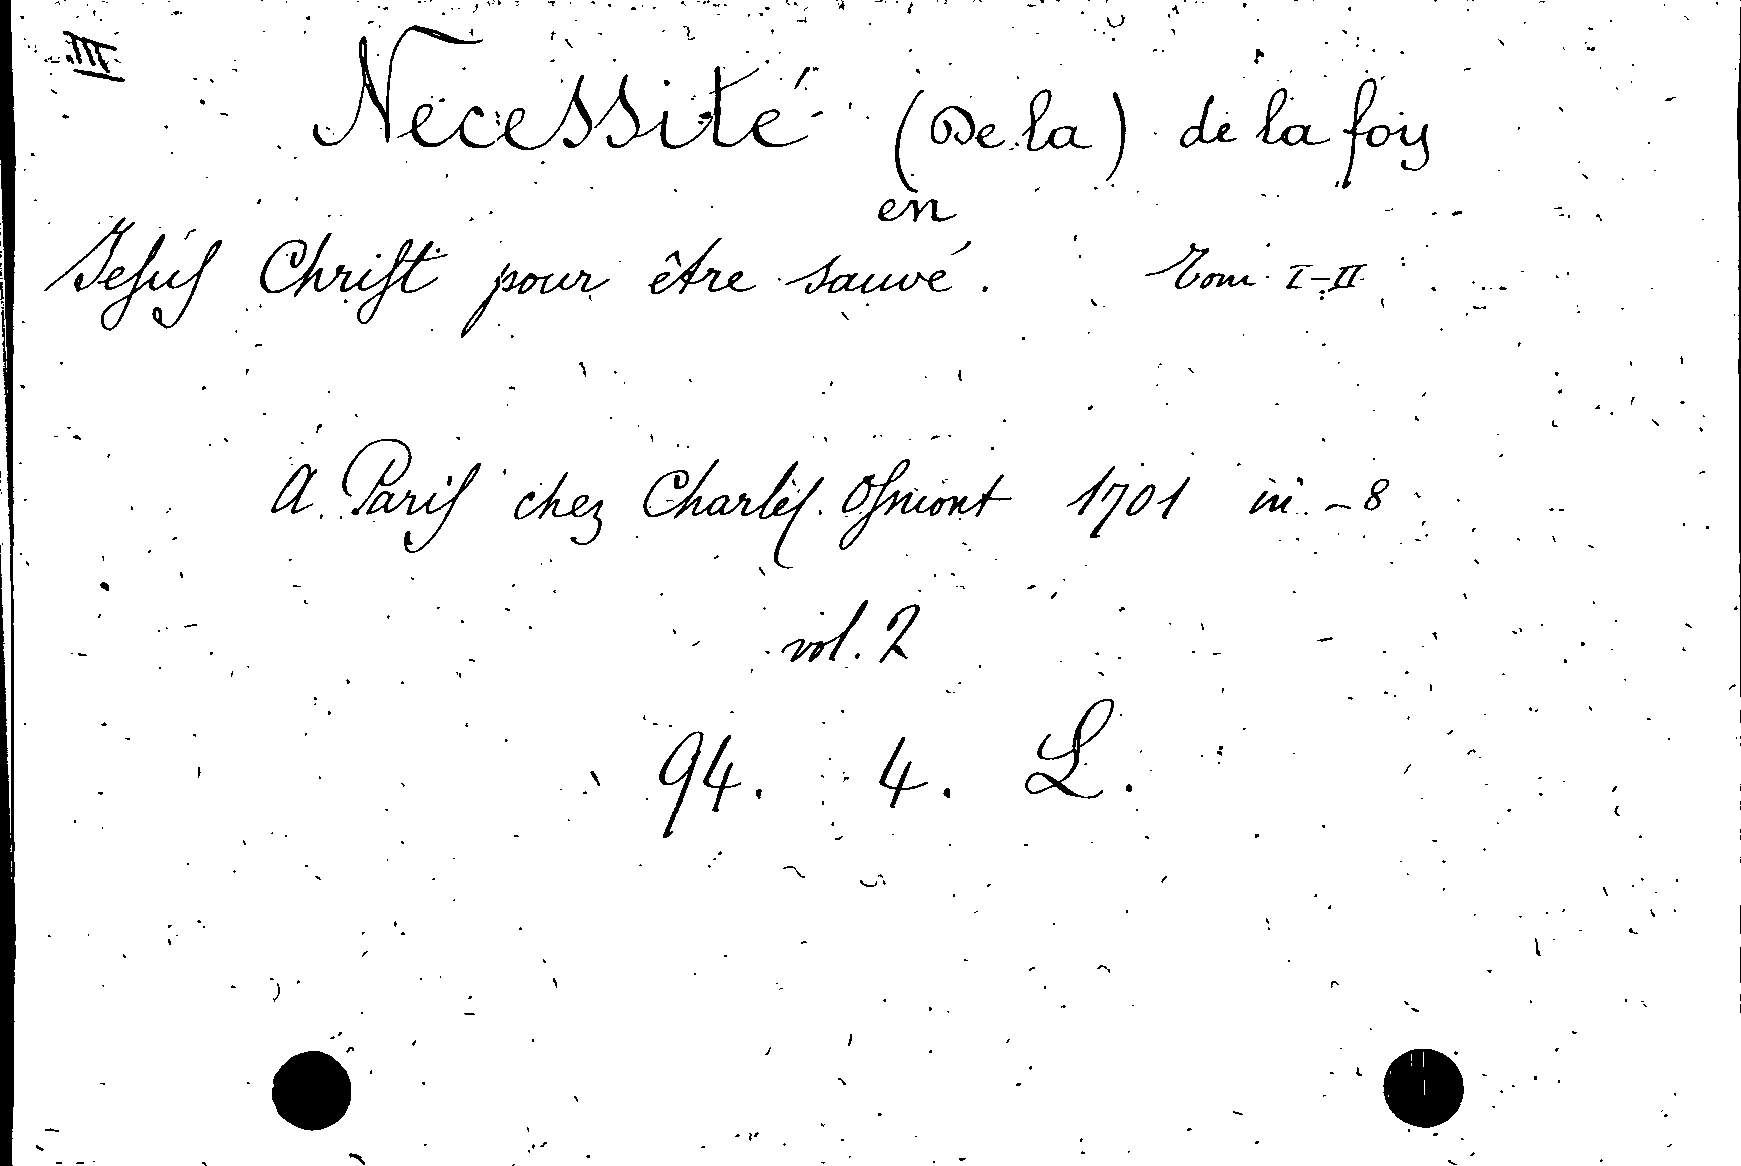 III.
Necessité (De la) de la foy
en
Jesus Christ pour être sauvé. Tom I-II
A Paris chez Charles Osmont 1701 in -8
vol. 2
94. 4. L.